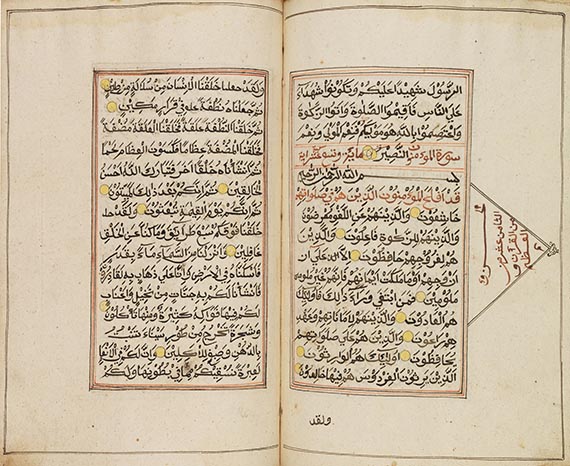 الرسول شهيدا عليكم وتكونوا شهداء
على الناس فاقيموا الصلوة واتوا الزكوة
واعتصموا بالله هو موليكم فنعم المولى ونعم
سورة المومنون النصير مائة وتسع عشر اية
بسم الله الرحمن الرحيم
قد افلح المومنون الذين هم في صلاتهم
خاشعون والذين هم عن اللغو معرضون
والذين هم للزكوة فاعلون والذين
هم لفروجهم حافظون الا على ازواجهم
او ما ملكت ايمانهم فانهم غير
ملومين فمن ابتغى وراء ذلك فاولئك
هم العادون والذين هم لاماناتهم وعهدهم
هم راعون والذين هم على صلواتهم
يحافظون اولئك هم الوارثون
الذين يرثون الفردوس هم فيها خالدون
ولقد
الثامن عشر من
القران
العظيم
ولقد خلقنا الانسان من سلالة من طين
ثم جعلناه نطفة في قرار مكين
ثم خلقنا النطفة علقة فخلقنا العلقة مضغة
فخلقنا المضغة عظاما فكسونا العظام لحما
ثم انشاناه خلقا اخر فتبارك الله احسن
الخالقين ثم انكم بعد ذلك لميتون
ثم انكم يوم القيمة تبعثون ولقد
خلقنا فوقكم سبع طرائق وما كنا عن الخلق
غافلين وانزلنا من السماء ماء بقدر
فاسكناه في الارض وانا على ذهاب به لقادرون
فانشانا لكم به جنات من نخيل واعناب
لكم فيها فواكه كثيرة ومنها تاكلون
وشجرة تخرج من طور سيناء تنبت
بالدهن وصبغ للاكلين وان لكم في الانعام
لعبرة نسقيكم مما في بطونها ولكم